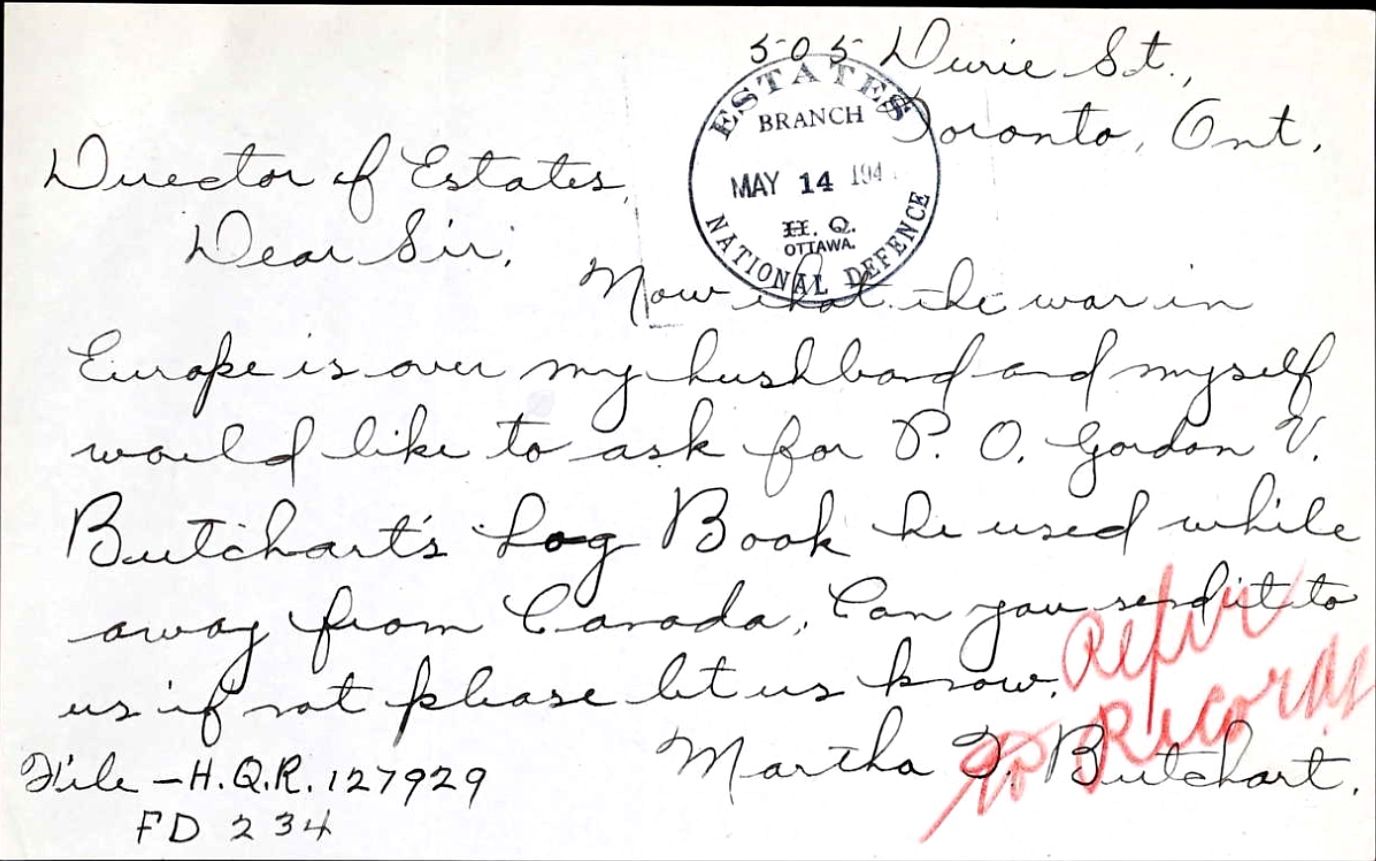 505 Durie St.,
Toronto, Ont.
ESTATES
BRANCH
MAY 14 194
H. Q.
OTTAWA.
NATIONAL DEFENCE
Director of Estates,
Dear Sir;
Now that the war in
Europe is over my hushband and myself
would like to ask for P. O. Gordon V.
Butchart's Log Book he used while
away from Canada. Can you send it to
us if not please let us know.
Refer
to Records
Martha J. Butchart.
File – H.Q.R. 127929
FD 234